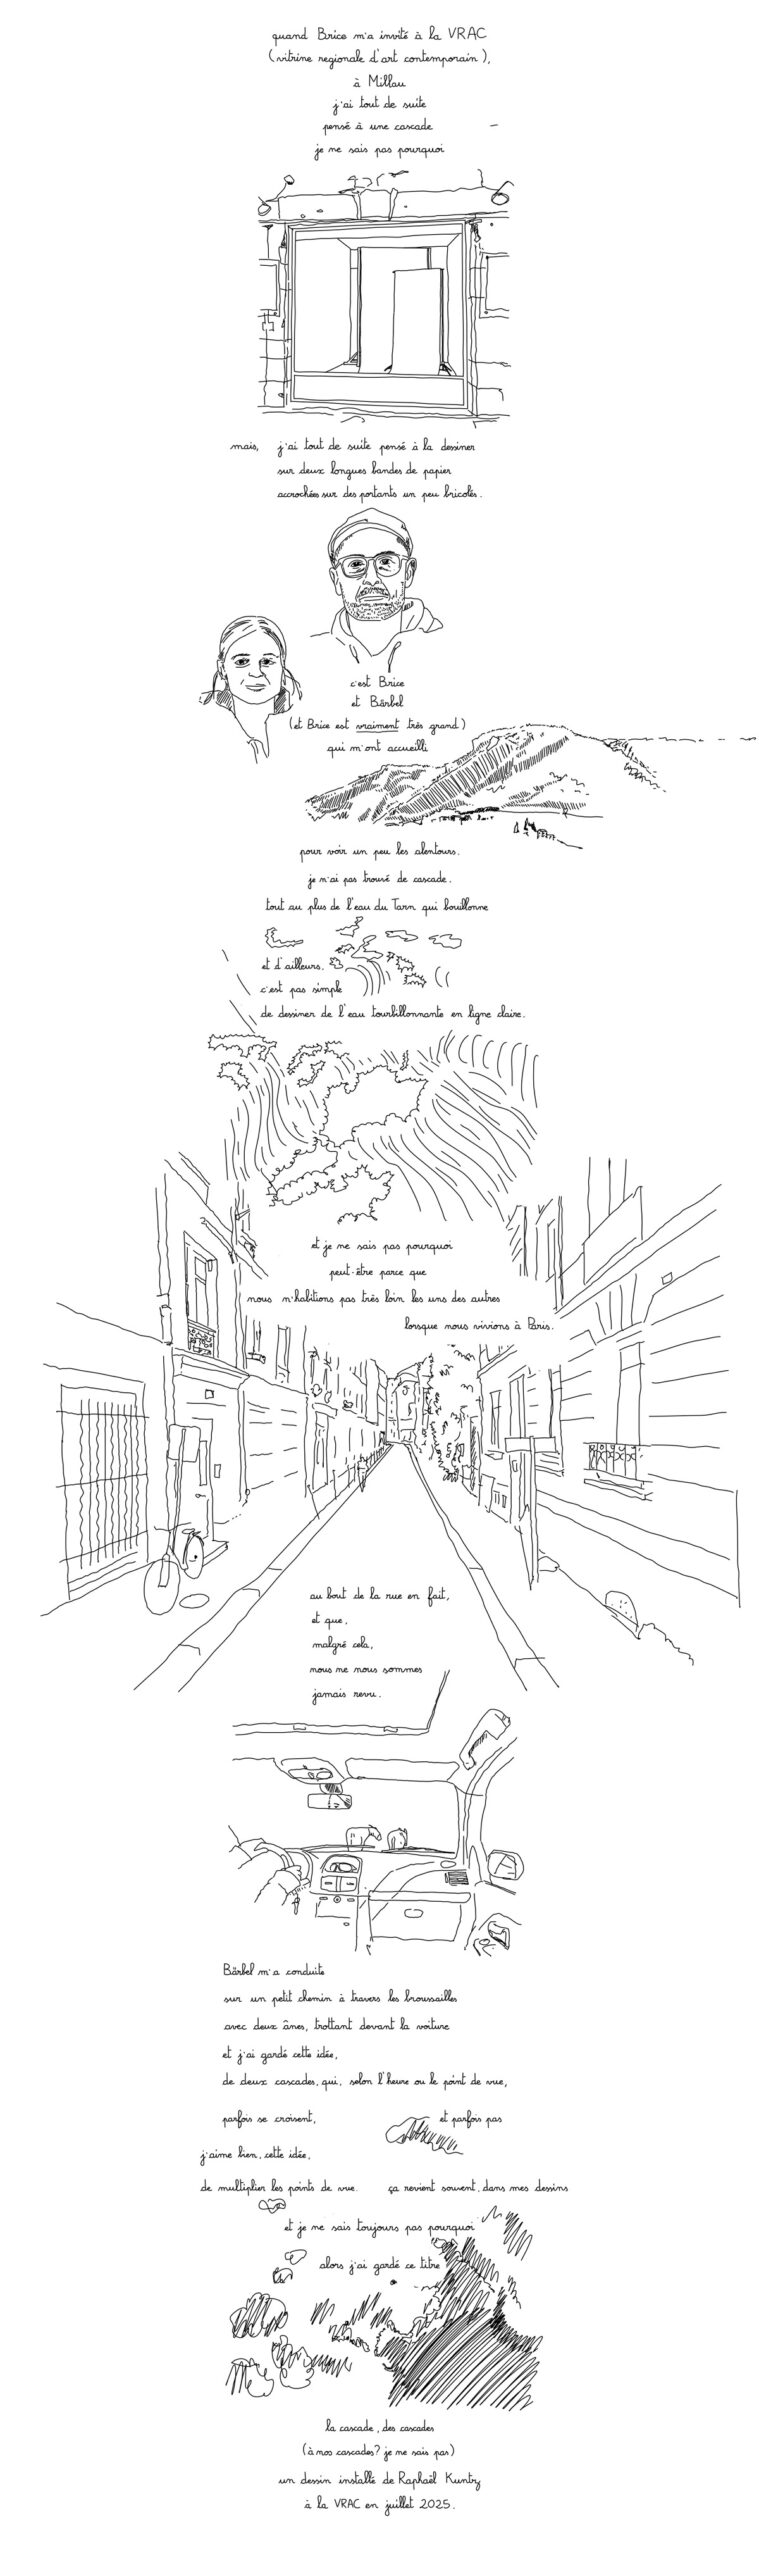 quand Brice m'a invité à la VRAC
(vitrine regionale d'art contemporain),
à Millau
j'ai tout de suite
pensé à une cascade
je ne sais pas pourquoi
mais, j'ai tout de suite pensé à la dessiner
sur deux longues bandes de papier
accrochées sur des portants un peu bricolés.
c'est Brice
et Bärbel
(et Brice est vraiment très grand)
qui m'ont accueilli
pour voir un peu les alentours.
je n'ai pas trouvé de cascade.
tout au plus de l'eau du Tarn qui bouillonne
et d'ailleurs.
c'est pas simple
de dessiner de l'eau tourbillonnante en ligne claire.
et je ne sais pas pourquoi
peut-être parce que
nous n'habitions pas très loin les uns des autres
lorsque nous vivions à Paris.
au bout de la rue en fait,
et que,
malgré cela,
nous ne nous sommes
jamais revu.
Bärbel m'a conduite
sur un petit chemin à travers les broussailles
avec deux ânes, trottant devant la voiture
et j'ai gardé cette idée,
de deux cascades, qui, selon l'heure ou le point de vue,
parfois se croisent, et parfois pas
j'aime bien, cette idée,
de multiplier les points de vue. ça revient souvent, dans mes dessins
et je ne sais toujours pas pourquoi
alors j'ai gardé ce titre
la cascade, des cascades
(à nos cascades? je ne sais pas)
un dessin installé de Raphaël Kuntz
à la VRAC en juillet 2025.